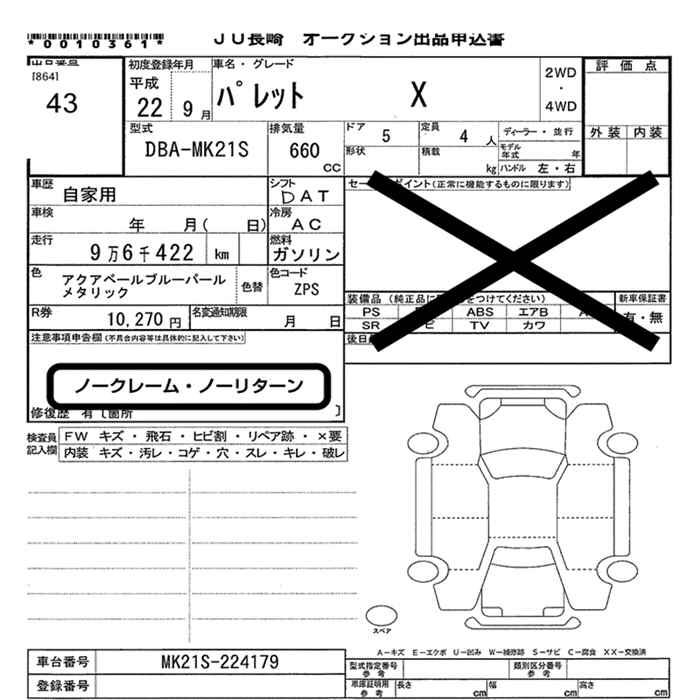 *0010361*
JU長崎 オークション出品申込書
[864]
43
初度登録年月
平成
22 9月
車名・グレード
パレット X
2WD
・
4WD
評価点
外装 内装
型式
DBA-MK21S
排気量
660
CC
ドア 5
定員 4 人
形状
積載 kg
ディーラー・並行
モデル年式 年
ハンドル 左・右
車歴 自家用
シフト DAT
車検 年 月( 日)
冷房 AC
走行 9万6千422 km
燃料 ガソリン
色 アクアペールブルーパール
メタリック
色替
色コード ZPS
R券 10,270円
名変通知期限 月 日
セー ポイント(正常に機能するものに限ります)
装備品(純正品に をつけてください)
新車保証書
PS ABS エアB
有・無
SR ビ TV カワ
後日
注意事項申告欄(不具合内容等は具体的に記入して下さい)
ノークレーム・ノーリターン
修復歴 有〔箇所 〕
検査員
記入欄
FW キズ・飛石・ヒビ割・リペア跡・×要
内装 キズ・汚レ・コゲ・穴・スレ・キレ・破レ
スペア
A−キズ E−エクボ U−凹み W−補修跡 S−サビ C−腐食 XX−交換済
車台番号 MK21S-224179
登録番号
型式指定番号
参考
類別区分番号
参考
車庫証明用
参考
長さ cm 幅 cm 高さ cm